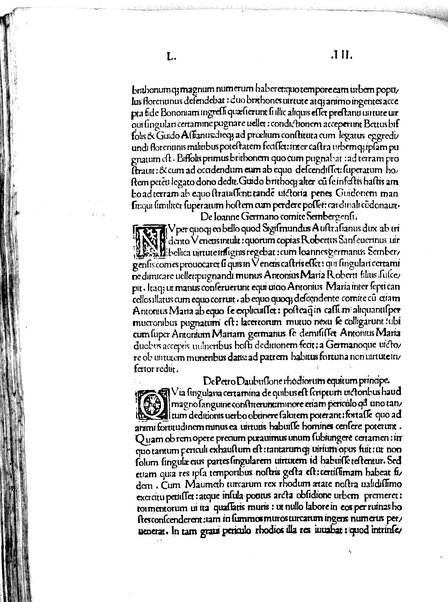 L. .III.
brithonum q; magnum numerum haberet: quo tempore eam urbem popu,
lus florentinus defendebat: duo brithones uirtute atq; animo ingentes acce,
pta fide Bononiam ingressi quæsierunt si illic aliquis esset prestanti uirtute uir
qui singulari certamine pugnare uellet: condictionem acceperunt Bettus bif
folis & Guido Assianus: dieq; ad proelium constituta cum legatus eggredi/
undi floreninis militibus potestatem fecisset: inter castra urbemq; ipsam pu
gnatum est. Biffolis primus brithonem quo cum pugnabat: ad terram pro
strauit: & cum ad occidendum eum ab equo descendisset: superatum ho,
stem petenti legato dono dedit. Guido brithoq; alter cū se infestis hastis am
bo ad terram ab equo strauissent: tandē uictoria penes Guidonem man
sit: qui similiter superatum hostem cum perdere posset: cardinali cōdonauit.
De Ioanne Germano comite Sembergensi.
NVper quoq; eo bello quod Sigismundus Austrasianus dux ab tri
dento Venetis intulit: quorum copias Robertus Sanseuerinus uir
bellica uirtute insignis regebat: cum Ioannes germanus Sember,
gensis comes prouocaret: si quis in Venetis castris esset: qui singulari certami
ne dimicare uellet: pugnandi munus Antonius Maria Roberti filius susce/
pit. Itaq; ut manus conseruerunt equi uico Antonius Maria inter septi can
cellos illatus cum equo corruit. ab equo quoq; descendente comite cū etiam
Antonius Maria ab equo se explicuisset: posteaq̄ in cassum aliquantisper
mucronibus pugnatum est: lacertorum mutuo nexu se colligarunt: ubi
cum super Antonium Mariam germanus se demisisset Antonius Maria
duobus acceptis uulneribus hosti deditionem fecit: a Germanoque uicto/
re ob uirtutem muneribus datis: ad patrem habitus fortuna non uirtute in/
ferior rediit.
De Petro Daubussone rhodiorum equitum principe.
QVia singularia certamina de quibus est scriptum uictoribus haud
magno sanguine constiterunt: minore etiam periculo q̄d uno tan/
tum deditionis uerbo obtinere salutem poterant: fortasse quo ad
animi fortitudinem minus ea uirtutis habuisse homines censere poterunt.
Quam ob rem opere precium putauimus unum subiungere certamen: in
quo tantum periculi exhaustum est: tantarumq; uirium opus fuit: ut non
solum singulae eius partes singularem uirtutem id habuisse testentur. Sed
etiam quia res ipsa temporibus nostris gesta est: certissimam habeat fi/
dem. Cum Maumeth turcarum rex rhodum ætate nostra ualidissimo
exercitu petiisset: atque insula potitus arcta obsidione urbem premeret:
tormentorum ui ita quassatis muris: ut nullo labore in eos per ruinas ho
stes conscenderent: iam in summos muros turcarum ingens numerus per/
uenerat. In tam graui periculo rhodios illa res iuuabat: quod intrinse/